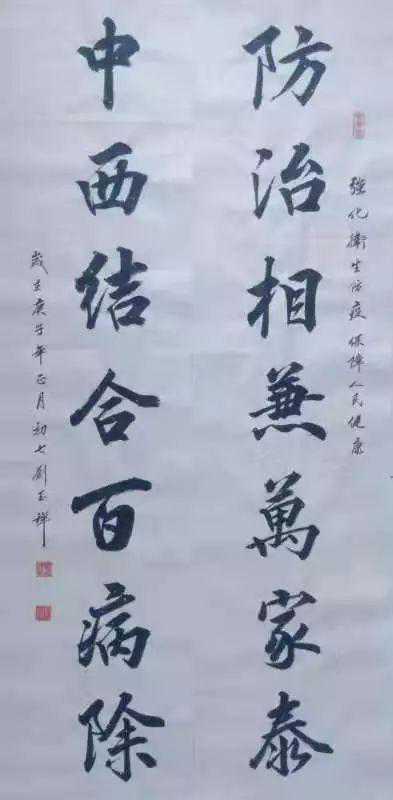 強化衛生防疫保障人民健康
防治相兼萬家泰
中西結合百病除
歲在庚子年正月初七劉玉祥